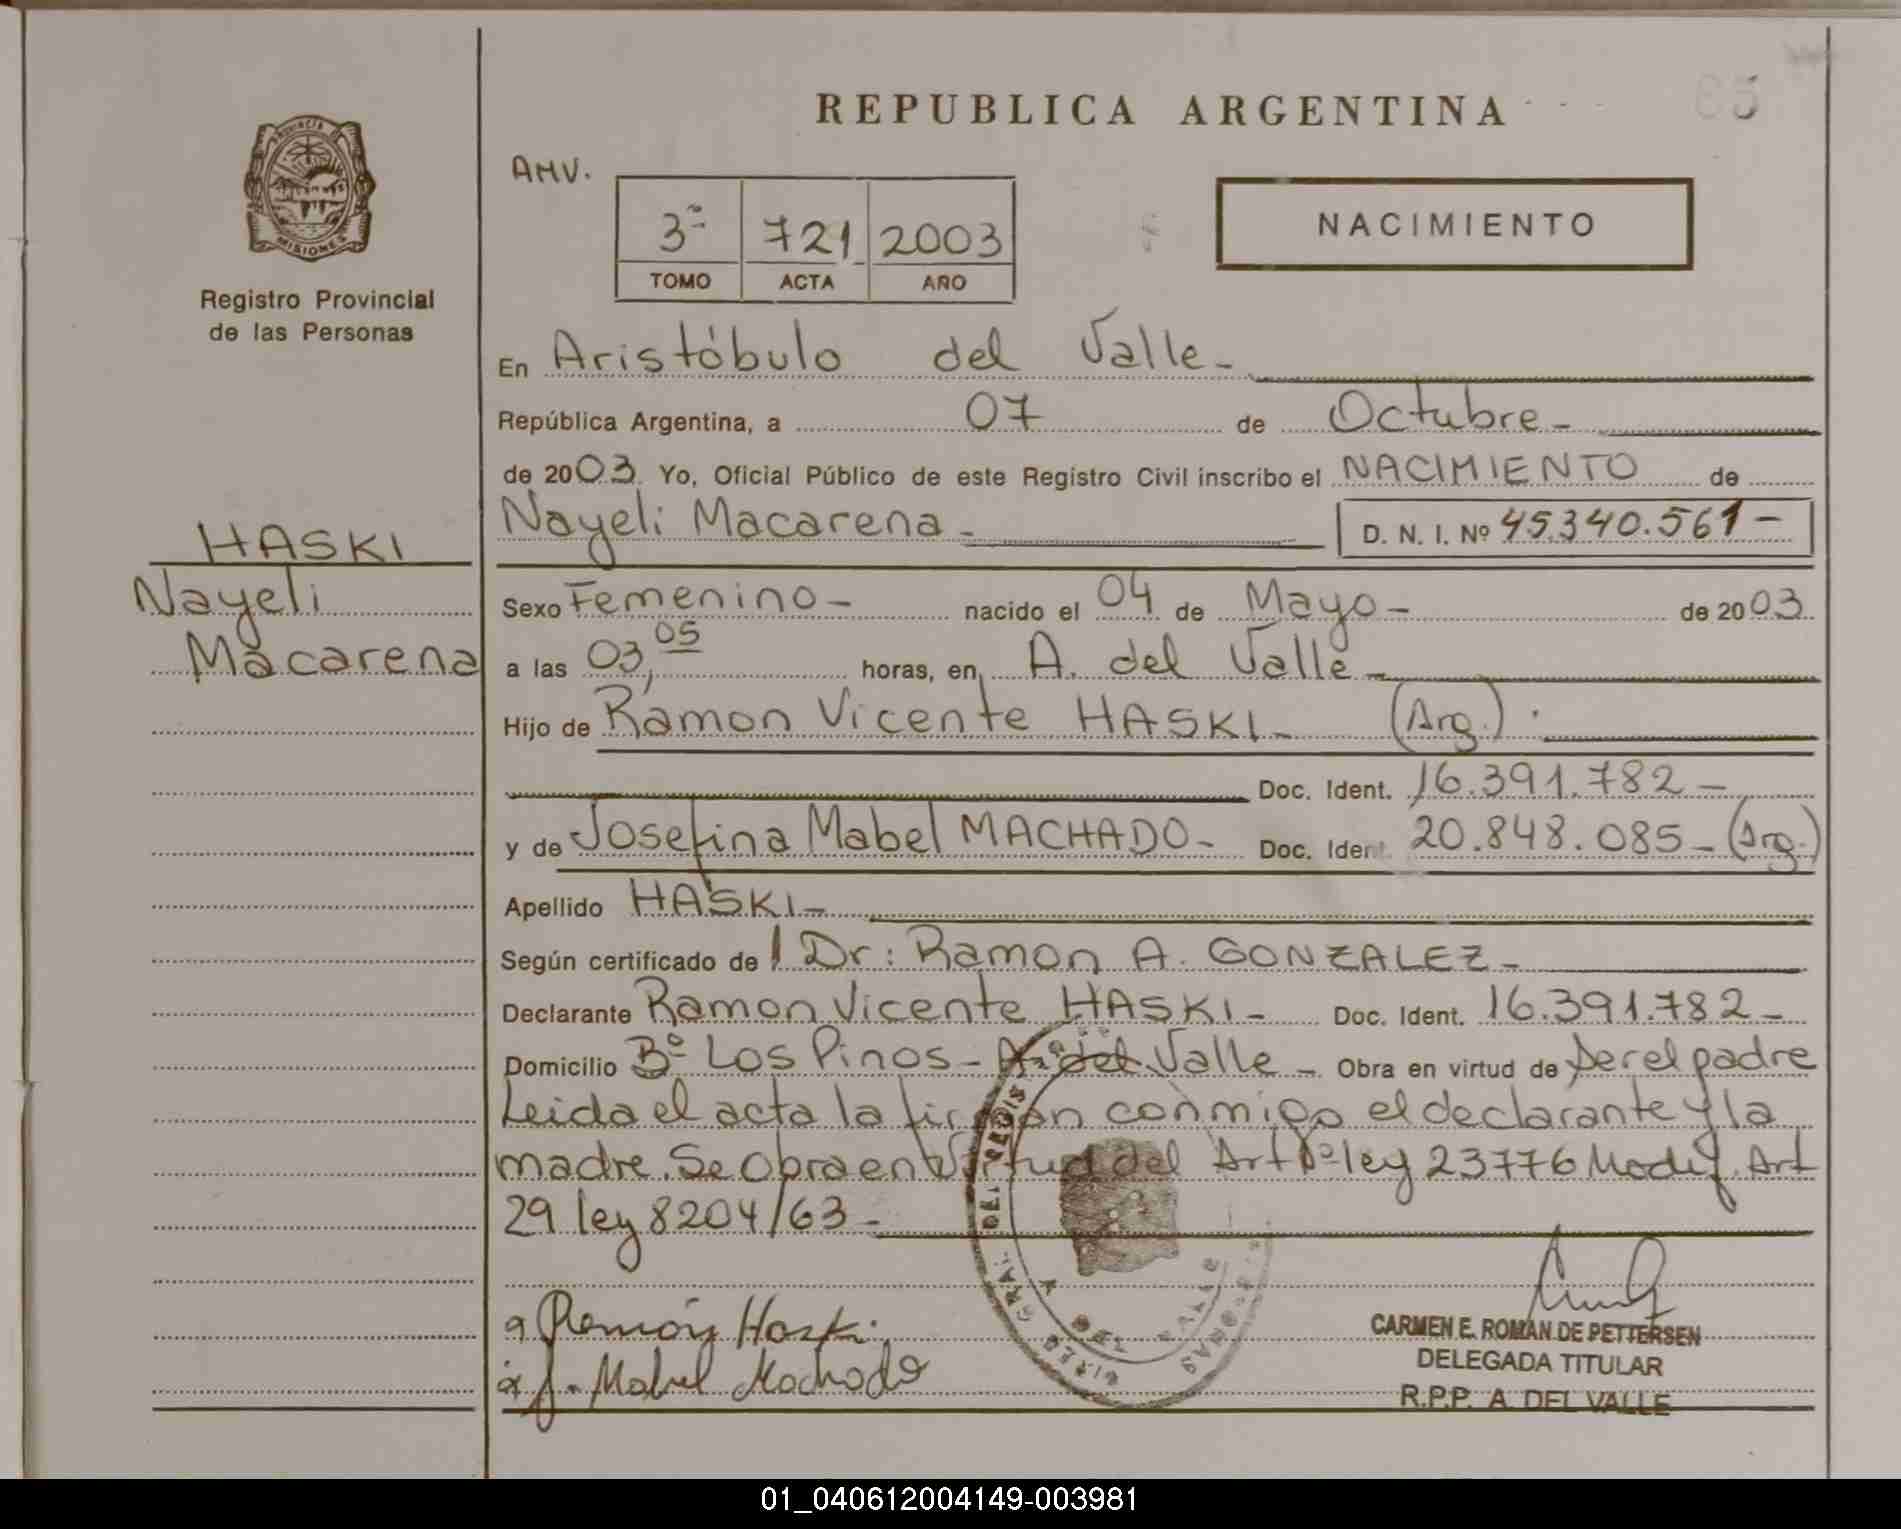 REPUBLICA ARGENTINA
65
AMV.
3º 721 2003
TOMO ACTA AÑO
NACIMIENTO
PROVINCIA DE
MISIONES
Registro Provincial
de las Personas
HASKI
Nayeli
Macarena
En Aristóbulo del Valle-
República Argentina, a 07 de Octubre-
de 2003. Yo, Oficial Público de este Registro Civil inscribo el NACIMIENTO de
Nayeli Macarena- D. N. I. Nº 45.340.561-
Sexo Femenino- nacido el 04 de Mayo- de 2003
a las 03,05 horas, en A. del Valle-
Hijo de Ramon Vicente HASKI- (Arg.).
Doc. Ident. 16.391.782-
y de Josefina Mabel MACHADO- Doc. Ident. 20.848.085-(Arg.)
Apellido HASKI-
Según certificado de l Dr: Ramon A. GONZALEZ-
Declarante Ramon Vicente HASKI- Doc. Ident. 16.391.782-
Domicilio Bº Los Pinos- A. del Valle- Obra en virtud de ser el padre
Leida el acta la firman conmigo el declarante y la
madre. Se obra en virtud del Art 1º ley 23776 Modif. Art
29 ley 8204/63-
Ramón Haski
J. Mabel Machado
DIREC. GRAL. DEL REGIS
DEL VALLE
CARMEN E. ROMAN DE PETTERSEN
DELEGADA TITULAR
R.P.P. A. DEL VALLE
01_040612004149-003981